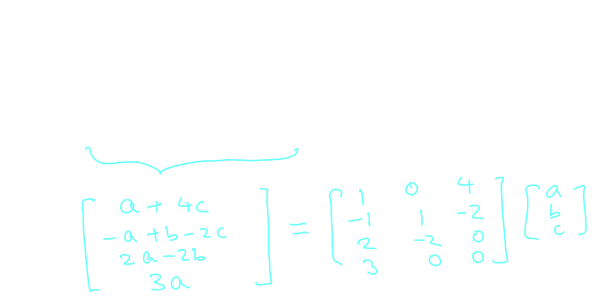 [a + 4c
-a + b - 2c
2a - 2b
3a] = [1 0 4
-1 1 -2
2 -2 0
3 0 0] [a
b
c]